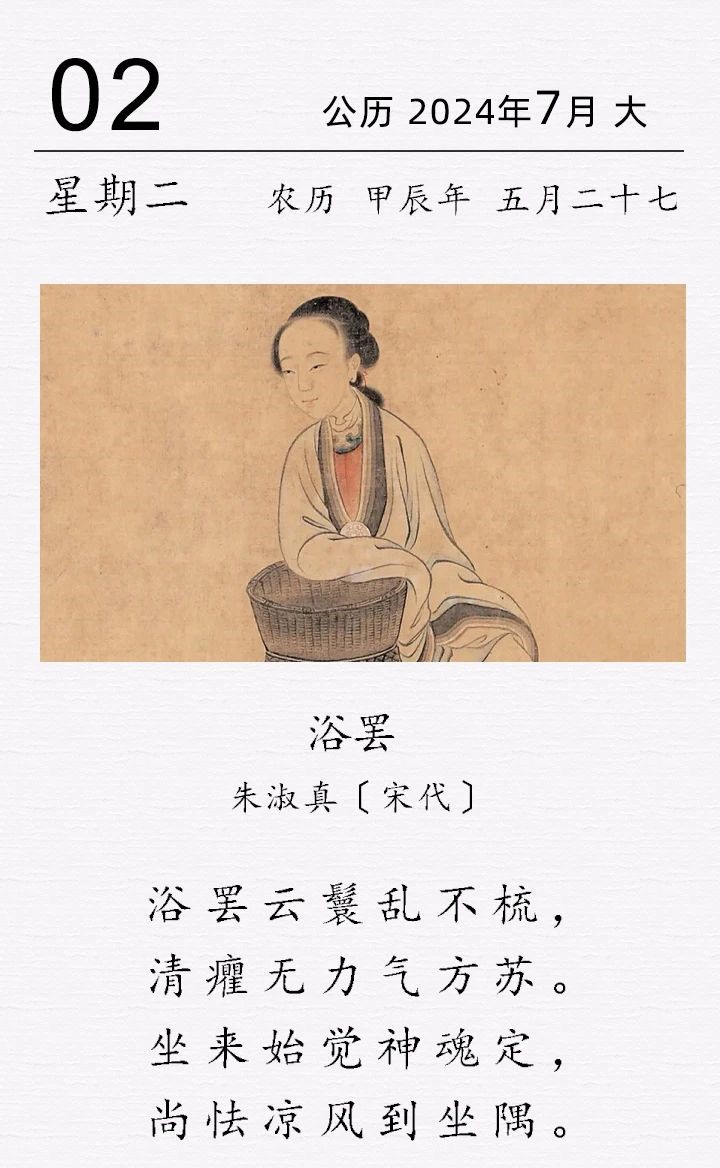 02
公历 2024年7月 大
星期二
农历 甲辰年 五月二十七
浴罢
朱淑真〔宋代〕
浴罢云鬟乱不梳，
清癯无力气方苏。
坐来始觉神魂定，
尚怯凉风到坐隅。